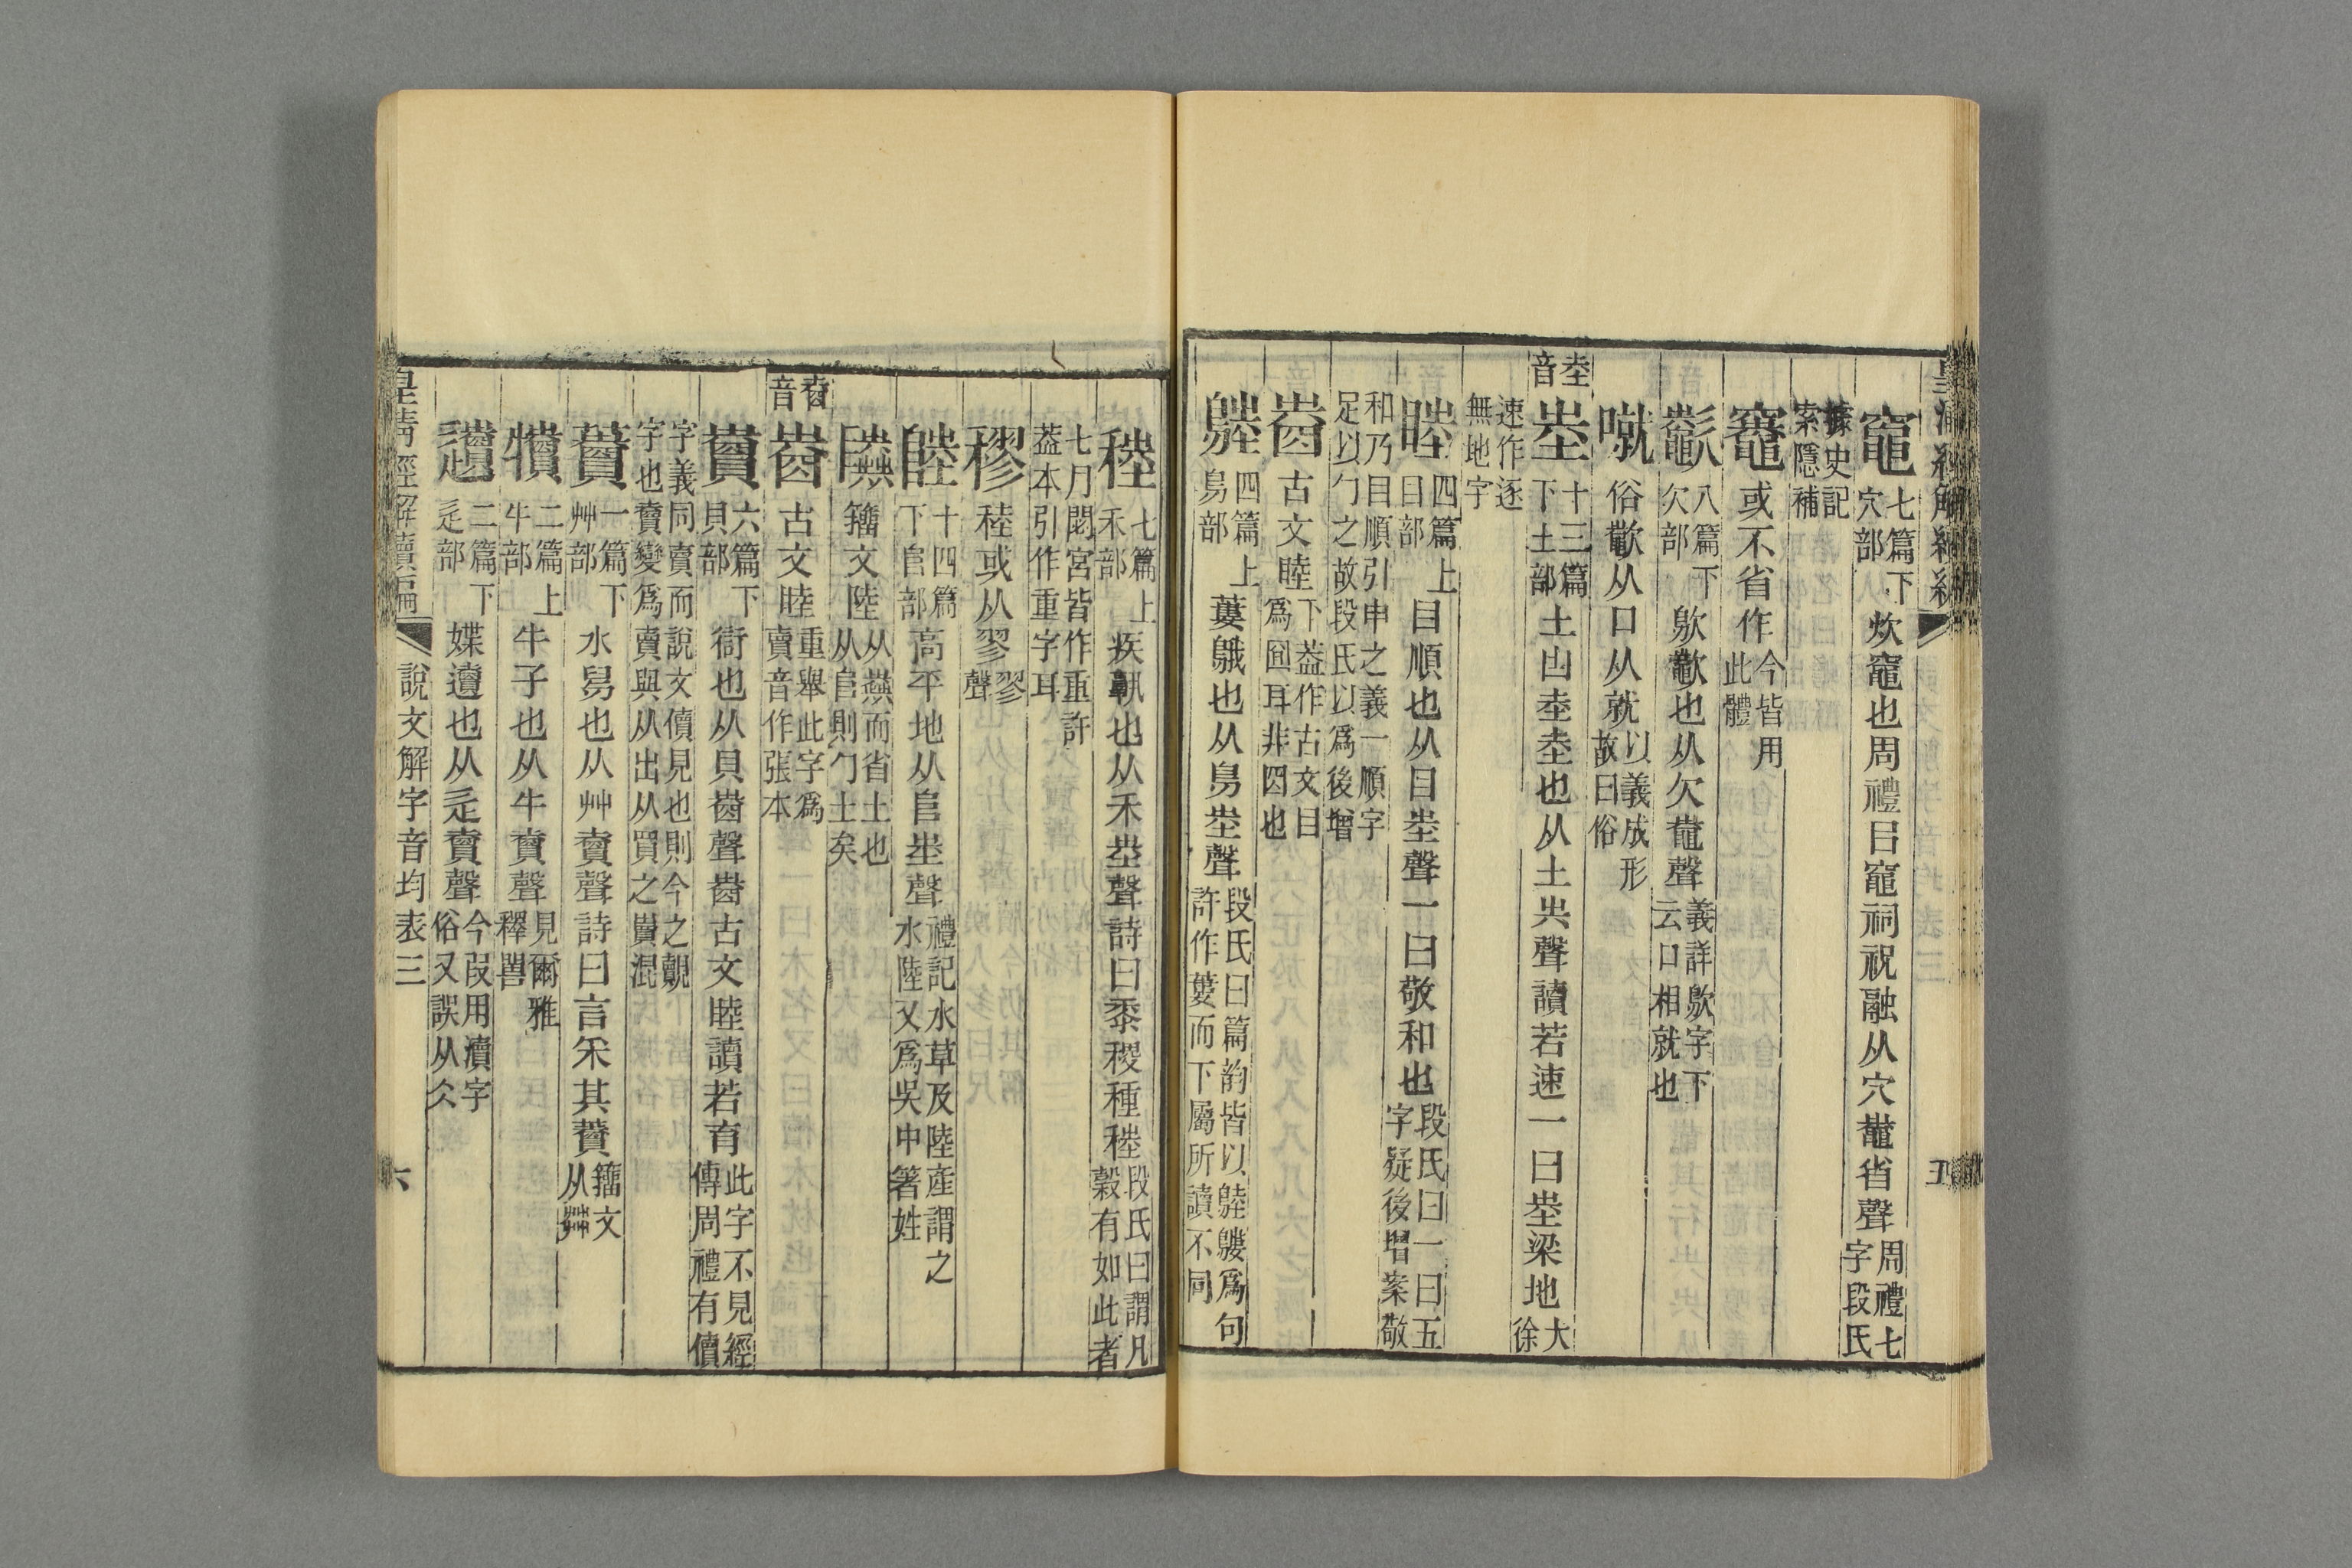 竈七篇下穴部炊竈也周禮㠯竈祠祝融从穴鼀省聲周禮七字段氏
據史記索隱補
竈或不省作今皆用此體
歠八篇下欠部歍歠也从欠鼀聲義詳歍字下云口相就也
噈俗歠从口从就以義成形故曰俗
坴音
坴十三篇下土部土凷坴坴也从土圥聲讀若速一曰坴梁地大徐
速作逐無地字
睦四篇上目部目順也从目坴聲一曰敬和也段氏曰一曰五字疑後增案敬
和乃目順引申之義一順字足以勹之故段氏以爲後增
𡍬古文睦下葢作古文目爲囧耳非囧也
𪅖四篇上鳥部蔞鵝也从鳥坴聲段氏曰篇韵皆以𪅖鷜爲句許作蔞而下屬所讀不同
稑七篇上禾部疾孰也从禾坴聲詩曰黍稷種稑段氏曰謂凡穀有如此者
七月閟宮皆作重許葢本引作重字耳
穋稑或从翏翏聲
陸十四篇下𨸏部高平地从𨸏坴聲禮記水草及陸產謂之水陸又爲吳中箸姓
籒文陸从𦫳而省土也从𨸏則勹土矣
𡍬音
𡍬古文睦重舉此字爲賣音作張本
賣六篇下貝部衙也从貝𡍬聲𡍬古文睦讀若育此字不見經傳周禮有儥
字義同賣而說文儥見也則今之覿字也賣變爲賣與从出从買之賣混
藚一篇下艸部水舄也从艸賣聲詩曰言采其藚籒文从茻
犢二篇上牛部牛子也从牛賣聲見爾雅釋嘼
遺二篇下辵部媟遺也从辵賣聲今叚用瀆字俗又誤从仌
皇淸經解續編
說文解字音均表三
五
六